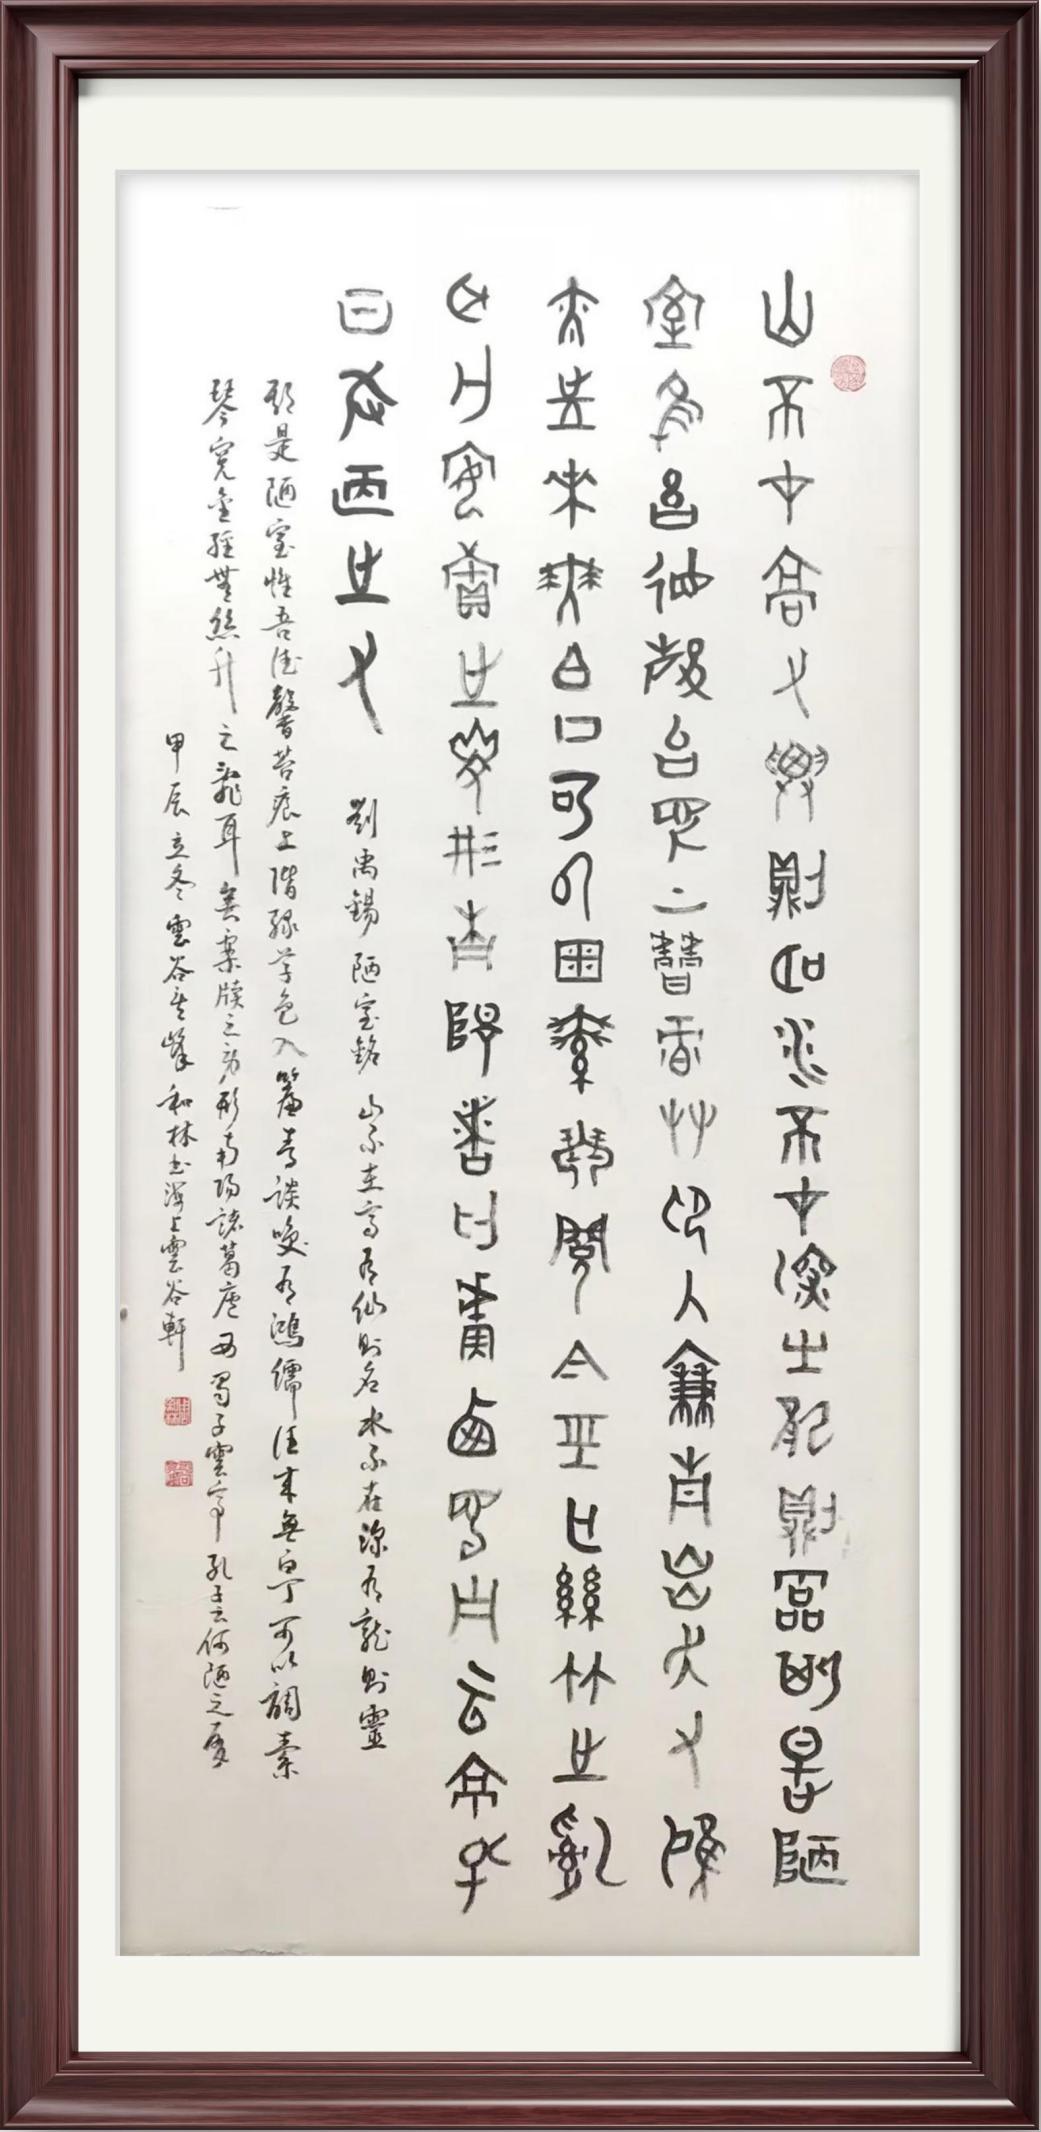 山不在高有仙則名水不在深有龍則靈斯是陋
室惟吾德馨苔痕上階綠草色入簾青談笑有鴻
儒往來無白丁可以調素琴閱金經無絲竹之亂
耳無案牘之勞形南陽諸葛廬西蜀子雲亭孔子
曰何陋之有
劉禹錫 陋室銘 山不在高有仙則名水不在深有龍則靈
斯是陋室惟吾德馨苔痕上階綠草色入簾青談笑有鴻儒往來無白丁可以調素
琴閱金經無絲竹之亂耳無案牘之勞形南陽諸葛廬西蜀子雲亭孔子云何陋之有
甲辰立冬雲谷峰和林書海上雲谷軒